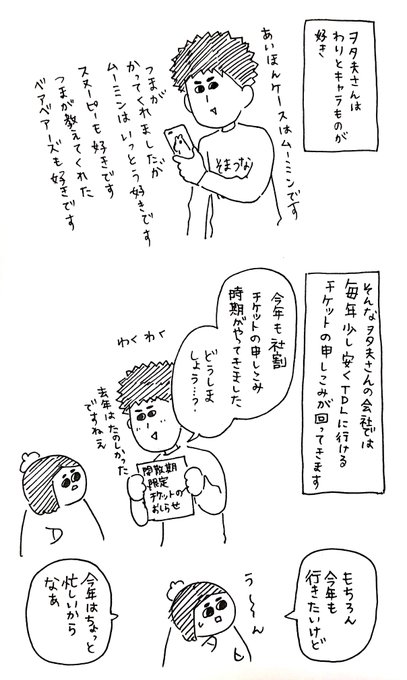 ヲタ夫さんは
わりとキャラものが
好き
あいほんケースはムーミンです
そまつなり
つまが
かってくれましたが
ムーミンはいっとう好きです
スヌーピーも好きです
つまが教えてくれた
ベアベアーズも好きです
そんなヲタ夫さんの会社では
毎年少し安くTDLに行ける
チケットの申しこみが回ってきます
今年も社割
チケットの申しこみ
時期がやってきました
どうしま
しょう…?
わくわく
去年はたのしかった
ですねえ
閑散期
限定
チケットの
おしらせ
D
もちろん
今年も
行きたいけど
う〜ん
今年はちょっと
忙しいから
なぁ